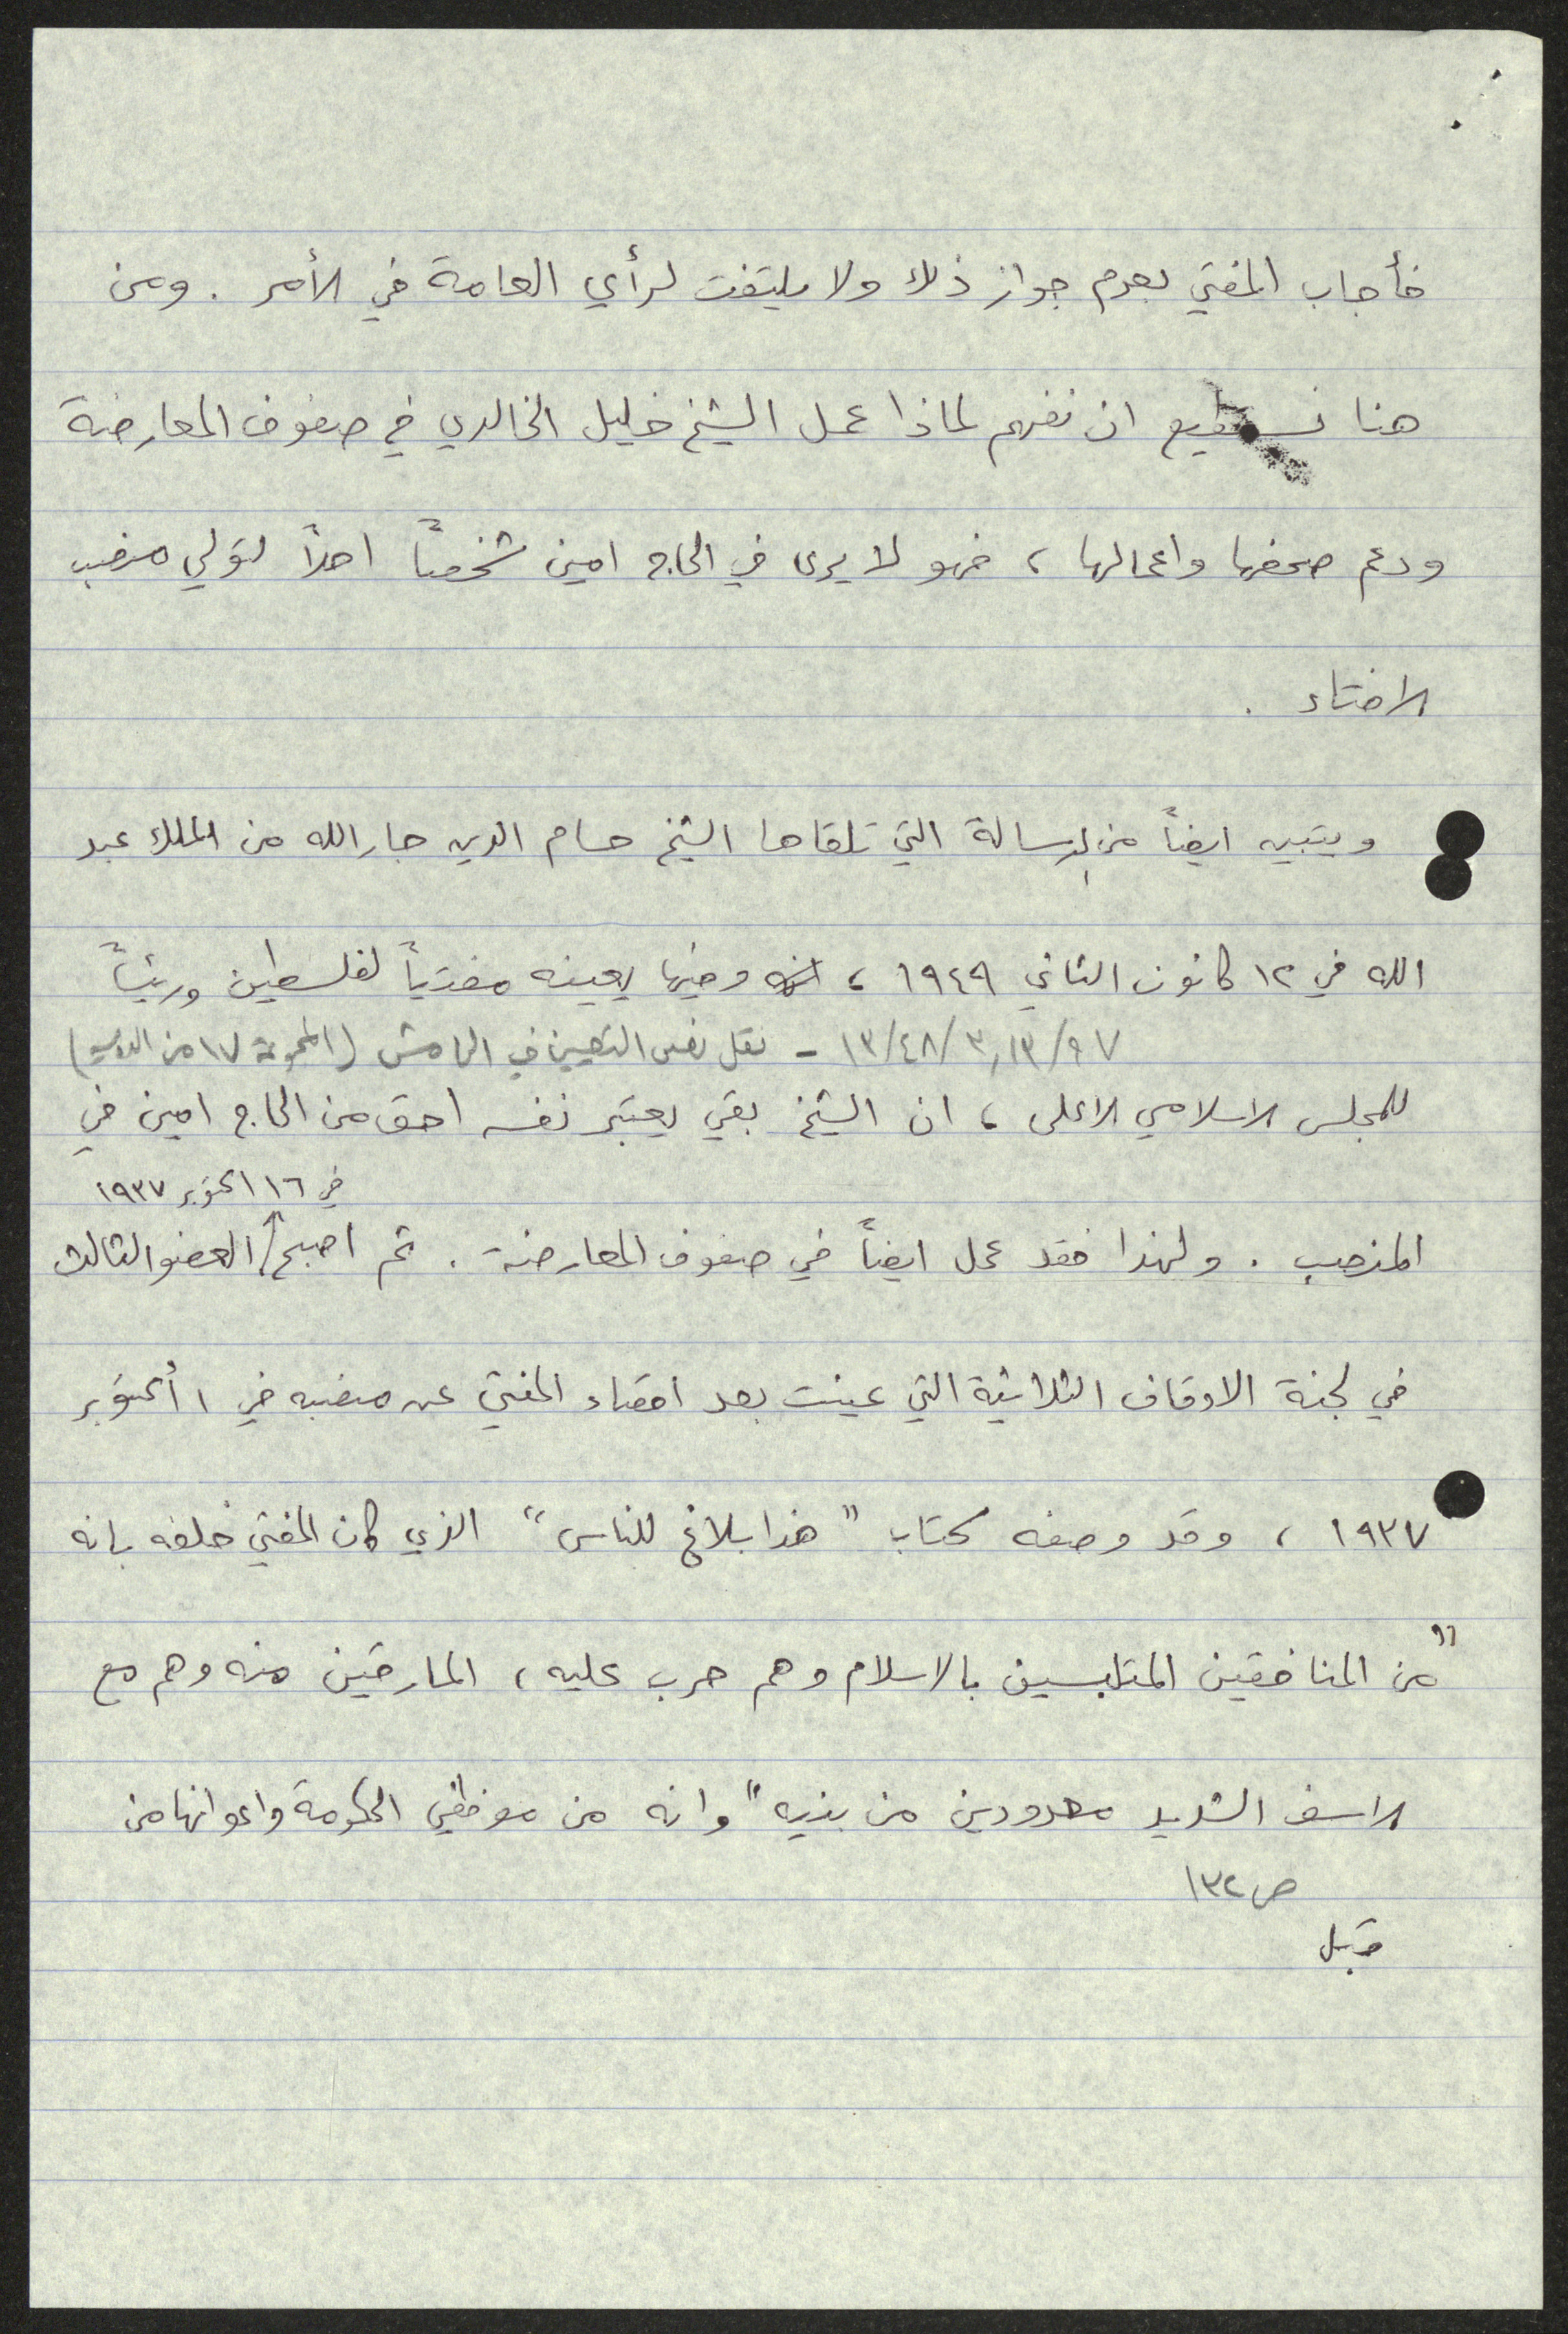 فأجاب المفتي بعدم جواز ذلك ولا يلتفت لرأي العامة في الأمر . ومن
هنا نستطيع ان نفهم لماذا عمل الشيخ خليل الخالدي في صفوف المعارضة
ودعم صحفها واعمالها ، فهو لا يرى في الحاج امين شخصاً اهلاً لتولي منصب
الافتاء .
ويتبين ايضاً من الرسالة التي تلقاها الشيخ حسام الدين جار الله من الملك عبد
الله في ١٢ كانون الثاني ١٩٤٩ ، وفيها يعينه مفتياً لفلسطين ورئيساً
١٣/٤٨/٣,١٣/٩٧ - نقل نص التعيين في الهامش (المجموعة ١٧ من
للمجلس الاسلامي الاعلى ، ان الشيخ بقي يعتبر نفسه احق من الحاج امين في
في ١٦ اكتوبر ١٩٣٧
المنصب . ولهذا فقد عمل ايضاً في صفوف المعارضة . ثم اصبح العضو الثالث
في لجنة الاوقاف الثلاثية التي عينت بعد اقصاء المفتي عن منصبه في ١ أكتوبر
١٩٣٧ ، وقد وصفه كتاب "هذا بلاغ للناس" الذي كان المفتي خلفه بانه
"من المنافقين المتلبسين بالاسلام وهم حرب عليه ، المارقين منه وهم مع
الاسف الشديد معدودين من بنيه" وانه من موظفي الحكومة واعوانها من
ص ١٣٢
قبل